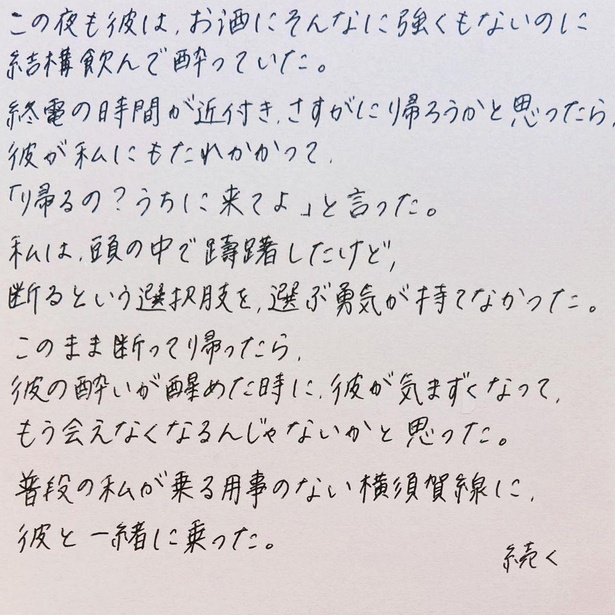 この夜も彼は、お酒にそんなに強くもないのに
結構飲んで酔っていた。
終電の時間が近付き、さすがに帰ろうかと思ったら、
彼が私にもたれかかって、
「帰るの？うちに来てよ」と言った。
私は、頭の中で躊躇したけど、
断るという選択肢を、選ぶ勇気が持てなかった。
このまま断って帰ったら、
彼の酔いが醒めた時に、彼が気まずくなって、
もう会えなくなるんじゃないかと思った。
普段の私が乗る用事のない横須賀線に、
彼と一緒に乗った。
続く